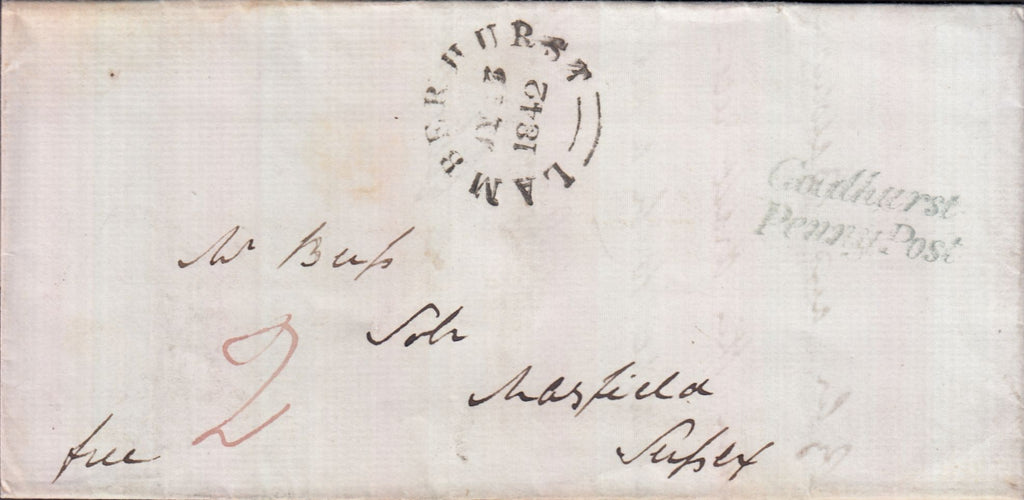 LAMBERHURST
1842
Goudhurst
Penny Post
Mr Buss
Solr
Maresfield
Sussex
2
free